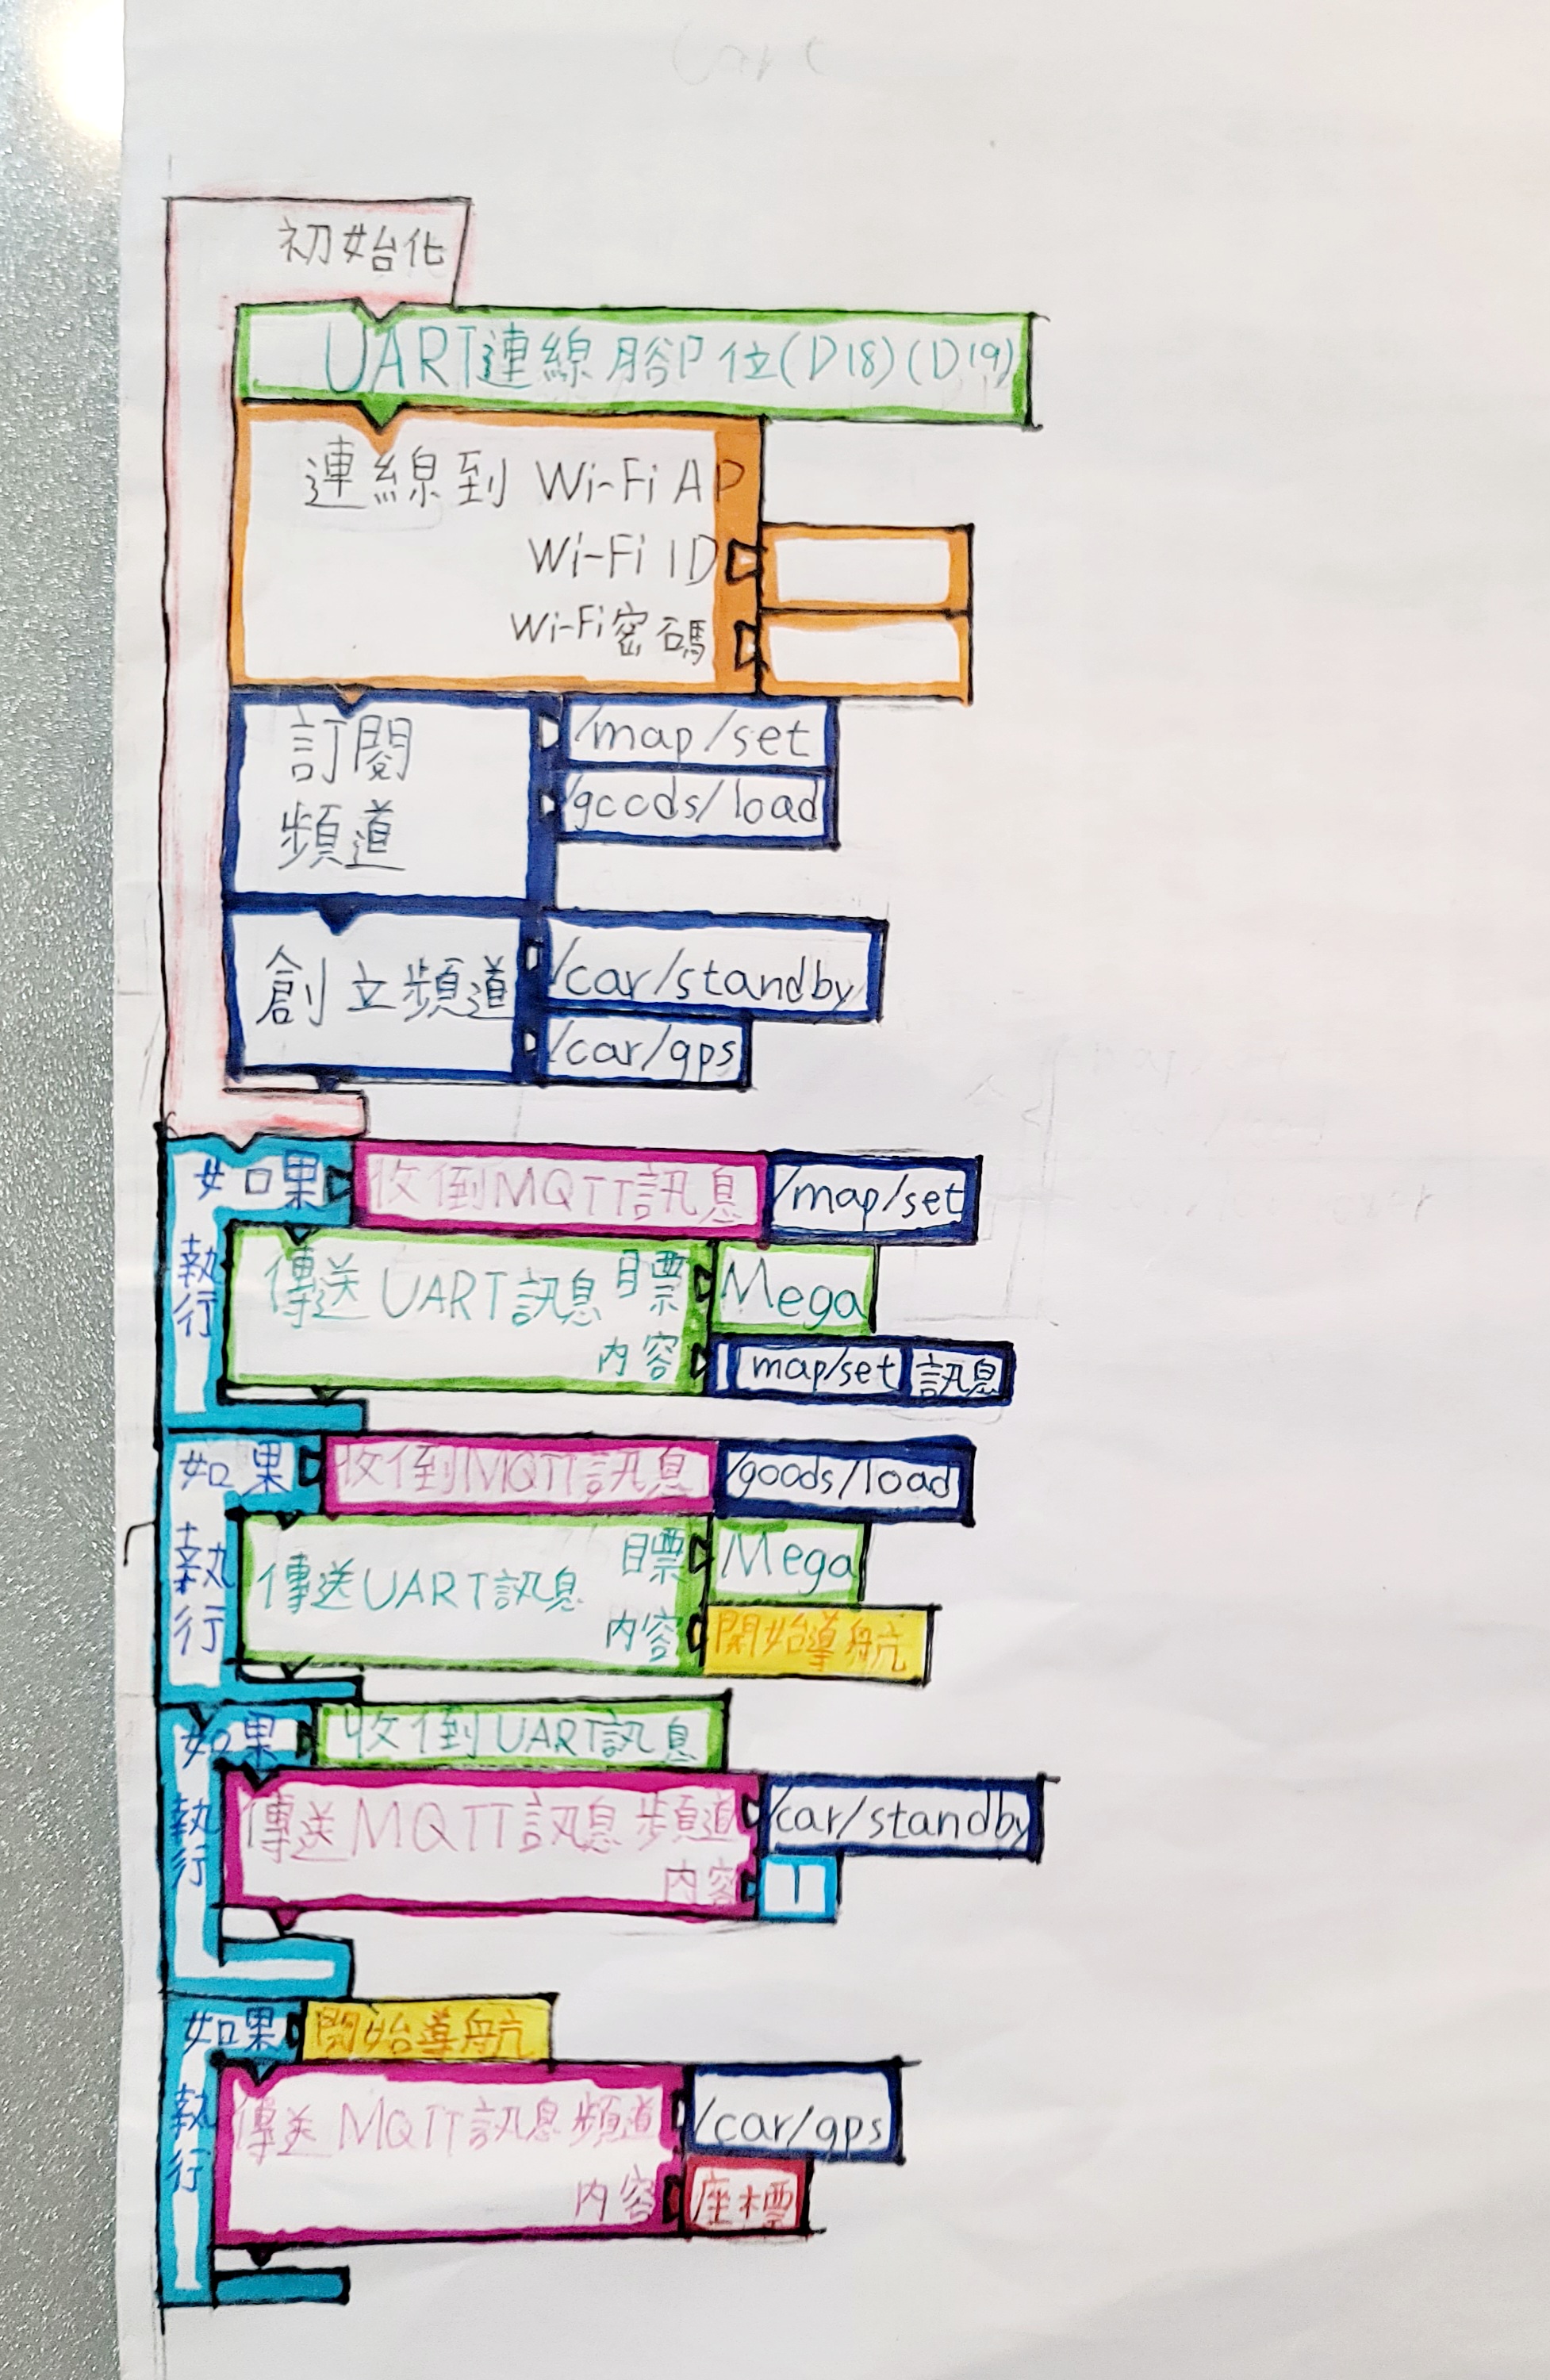 初始化
UART連線腳位(D18)(D19)
連線到 Wi-Fi AP
Wi-Fi ID
Wi-Fi密碼
訂閱 /map/set
頻道 /goods/load
創立頻道 /car/standby
/car/gps
如果 收到MQTT訊息 /map/set
執行 傳送UART訊息 目標 Mega
內容 map/set 訊息
如果 收到MQTT訊息 /goods/load
執行 傳送UART訊息 目標 Mega
內容 開始導航
如果 收到UART訊息
執行 傳送MQTT訊息 頻道 /car/standby
內容 1
如果 開始導航
執行 傳送MQTT訊息 頻道 /car/gps
內容 座標